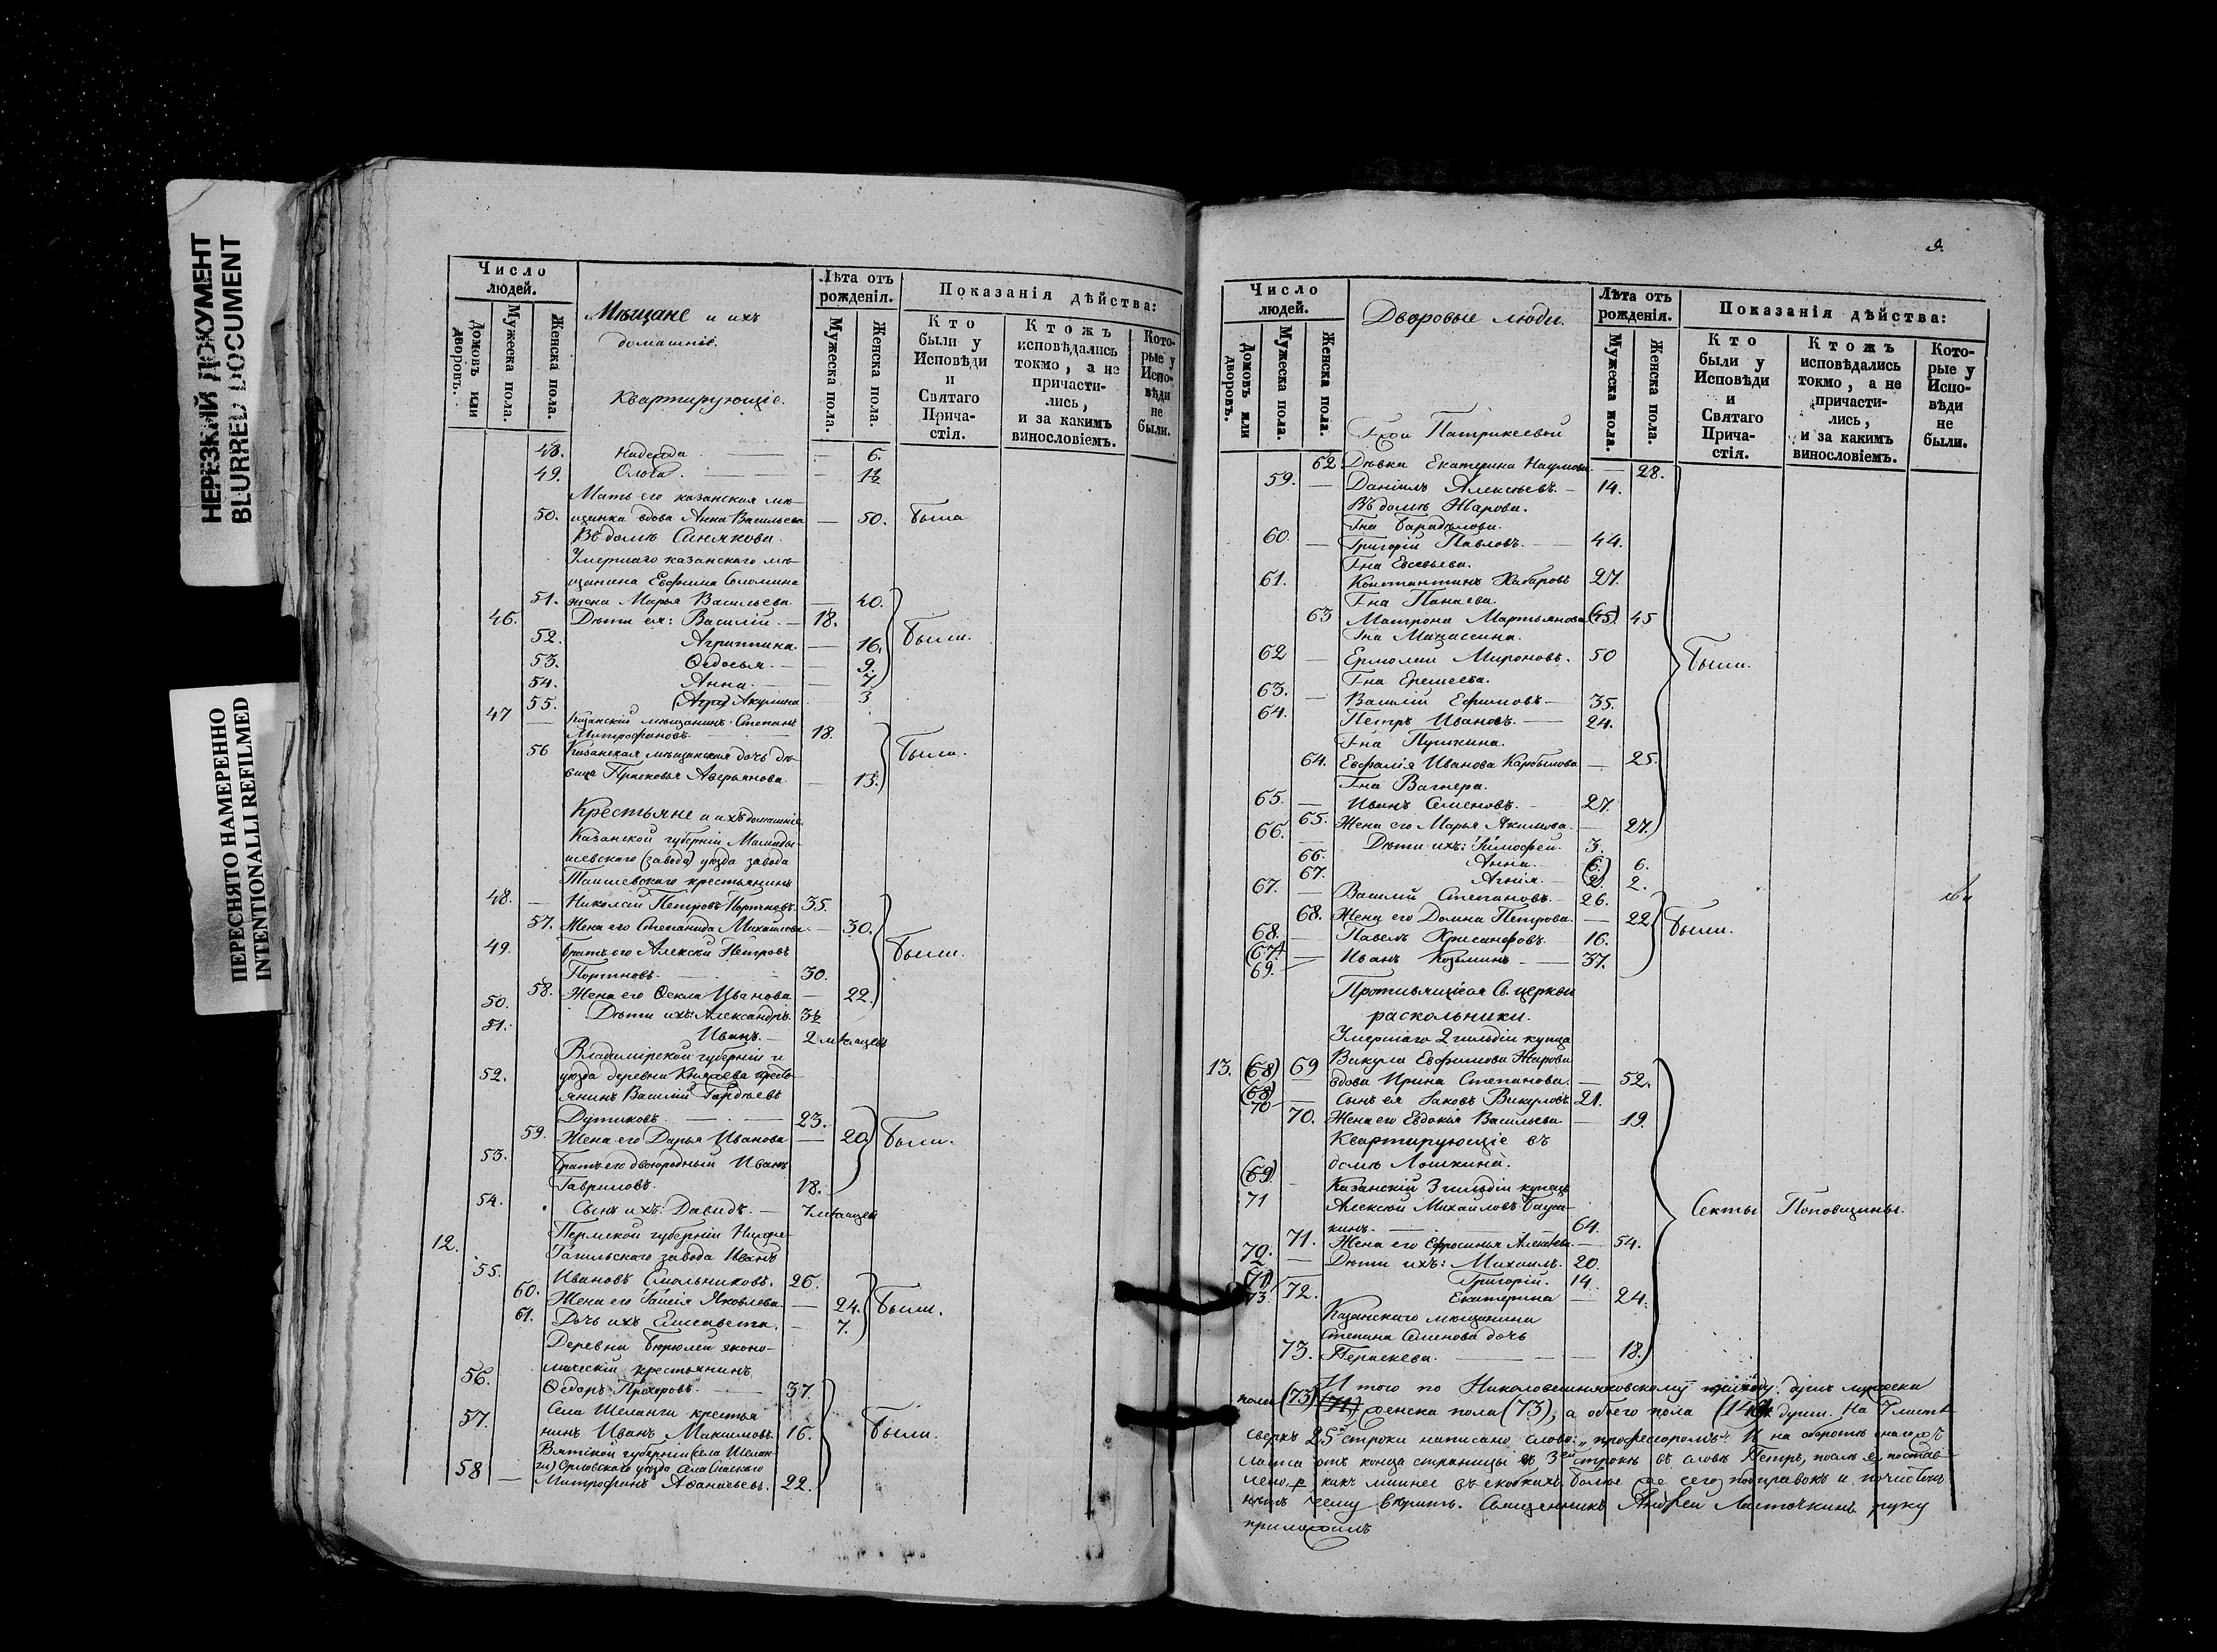 НЕРЕЗКИЙ ДОКУМЕНТ
BLURRED DOCUMENT
ПЕРЕСНЯТО НАМЕРЕННО
INTENTIONALLI REFILMED
Число людей.
Домовъ или дворовъ.
Мужеска пола.
Женска пола.
Мѣщане и ихъ
домашніе.
Квартирующіе.
Лѣта отъ рожденія.
Мужеска пола.
Женска пола.
Показанія дѣйства:
Кто были у Исповѣди и Святаго Причастія.
Ктожъ исповѣдались токмо, а не причастились, и за какимъ винословіемъ.
Которые у Исповѣди не были.
48. Надежда — 6.
49. Ольга — 1½
Мать его казанская мѣ-
50. щанка вдова Анна Васильева — 50. Была
Въ домѣ Синякова.
Умершаго казанского мѣ-
щанина Евфима Соломина
51. жена Марья Васильева — 40.
46. Дѣти ея: Василій. — 18.
52. Агрипина. — 16. Были.
53. Ѳедосья. — 9.
54. Анна. — 7
55. Акулина 3
47 — Казанскій мѣщанинъ Степанъ
Митрофановъ. 18.
56 Казанская мѣщанская дочь дѣ- Были.
вица Прасковья Аверьянова. — 13.
Крестьяне и ихъ домашніе.
Казанской губерніи Мамады-
шевского (завода) уѣзда завода
Таишевского крестьянинъ
48. — Николай Петровъ Портновъ. 35.
57. Жена его Степанида Михайлова — 30.
49. Братъ его Алексѣй Петровъ Были.
Портновъ. 30.
58. Жена его Ѳекла Иванова — 22.
50. Дѣти ихъ: Александръ. 3½
51. Иванъ. — 2 мѣсяцевъ
Владимірской губерніи и
52. уѣзда деревни Князева кресть-
янинъ Василій Гордѣевъ
Дутиковъ — 23.
59. Жена его Дарья Иванова — 20. Были.
53. Братъ его двоюродный Иванъ
Гавриловъ. 18.
54. Сынъ ихъ: Давидъ. — 7 мѣсяцей
Пермской губерніи Нижне-
12. Тагильского завода Иванъ
55. Ивановъ Смольниковъ. 26.
60. Жена его Таисія Яковлева — 24. Были.
61. Дочь ихъ Елисавета. — 7.
Деревни Бирюлей эконо-
мическій крестьянинъ
56. Ѳедоръ Прохоровъ. — 37.
Села Шеланги крестья
57. нинъ Иванъ Максимовъ. 16. Были.
Вятской губерніи (села Шелан-
ги) Орловского уѣзда села Спаского
58 — Митрофанъ Аѳанасьевъ. 22.
9.
Число людей.
Домовъ или дворовъ.
Мужеска пола.
Женска пола.
Дворовые люди.
Лѣта отъ рожденія.
Мужеска пола.
Женска пола.
Показанія дѣйства:
Кто были у Исповѣди и Святаго Причастія.
Ктожъ исповѣдались токмо, а не причастились, и за какимъ винословіемъ.
Которые у Исповѣди не были.
Г-жи Патрикеевой
62. Дѣвка Екатерина Наумова. — 28.
59. — Даніилъ Алексѣевъ. — 14.
Въ домѣ Жарова.
Г-на Барадулова.
60. — Григорій Павловъ. — 44.
Г-на Евсевьева.
61. Константинъ Хабаровъ 27.
Г-на Панаева.
63 Матрона Мартьянова (45) 45
Г-на Мацассина.
62 — Ермолай Мироновъ. 50 Были.
Г-на Еремеева.
63. — Василій Ефимовъ — 35.
64. Петръ Ивановъ. — 24.
Г-на Пушкина.
64. Евфалія Иванова Карабылова — 25.
Г-на Вагнера.
65. — Иванъ Семеновъ. — 27.
65. Жена его Марья Якимова. — 27.
66. — Дѣти ихъ: Тимофей. 3.
66. Анна. — (6.) 6.
67. Агнія. — (2.) 2.
67. — Василій Степановъ. — 26.
68. Жена его Домна Петрова. — 22. Были.
68. — Павелъ Хрисанфовъ — 16.
(67) 69. — Иванъ Козьминъ — 37.
Противящіеся Св. церкви
раскольники.
Умершаго 2 гильдіи купца
Викула Евфимова Жарова
13. (68) 69 вдова Ирина Степанова. — 52.
(68) 70 — Сынъ ея Іаковъ Викуловъ 21.
70. Жена его Евдокія Васильева — 19.
Квартирующіе въ
домѣ Лошкина.
(69) Казанскій 3 гильдіи купецъ
71 Алексѣй Михайловъ
кинъ. — 64. Секты Поповщины.
71. Жена его Ефросинья Алексѣева — 54.
72. — Дѣти ихъ: Михаилъ. 20.
(71) 73. Григорій. 14.
72. Екатерина — 24.
Казанского мѣщанина
Степана Семенова дочь
73. Параскева. — 18.
Итого по Николовешняковскому приходу: душъ мужеска
пола (73) (71), женска пола (73), а обоего пола душъ. На 7 листѣ
сверхъ 25й строки написано слово: „профессоромъ". И на оборотѣ
листа отъ конца страницы въ 3ей строкѣ въ словѣ Петръ, послѣ е постав-
лено р какъ лишнее въ скобкахъ. Болѣе же сего поправокъ и почистокъ
нѣтъ чему вѣрить. Священникъ Андрей Ласточкинъ руку
приложилъ